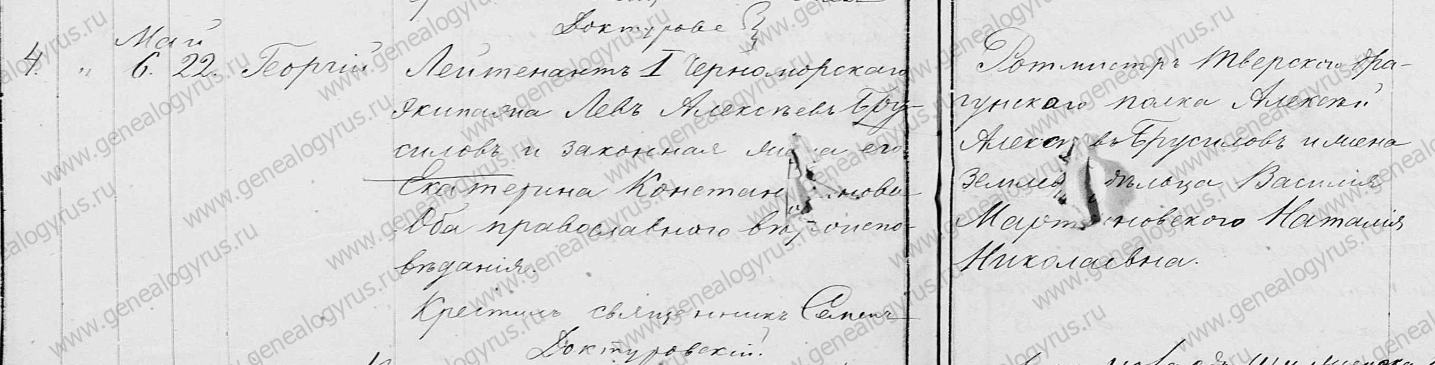 Доктурове
Май
4. " 6. 22. Георгій
Лейтенантъ I Черноморскаго
экипажа Левъ Алексѣевъ Бру-
силовъ и законная жена его
Екатерина Константинова
Оба православного вѣроиспо-
вѣданія.
Крестилъ священникъ Семенъ
Доктуровскій.
Ротмистръ Тверскаго дра-
гунскаго полка Алексѣй
Алексѣевъ Брусиловъ и жена
Землевладѣльца Василія
Мартыновского Наталія
Николаевна.
www.genealogyrus.ru